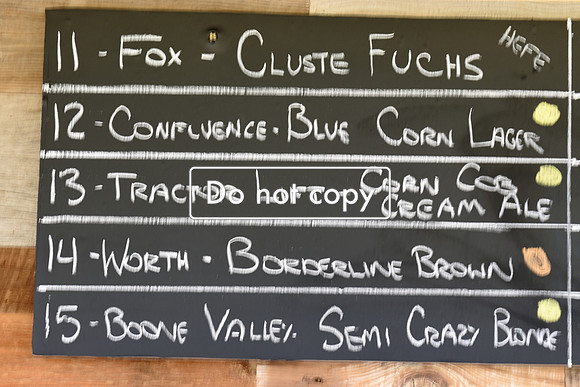 11 - FOX - CLUSTE FUCHS HEFE
12 - CONFLUENCE - BLUE CORN LAGER
13 - TRACTOR CORN COB
CREAM ALE
Do not copy
14 - WORTH - BORDERLINE BROWN
15 - BOONE VALLEY - SEMI CRAZY BLONDE